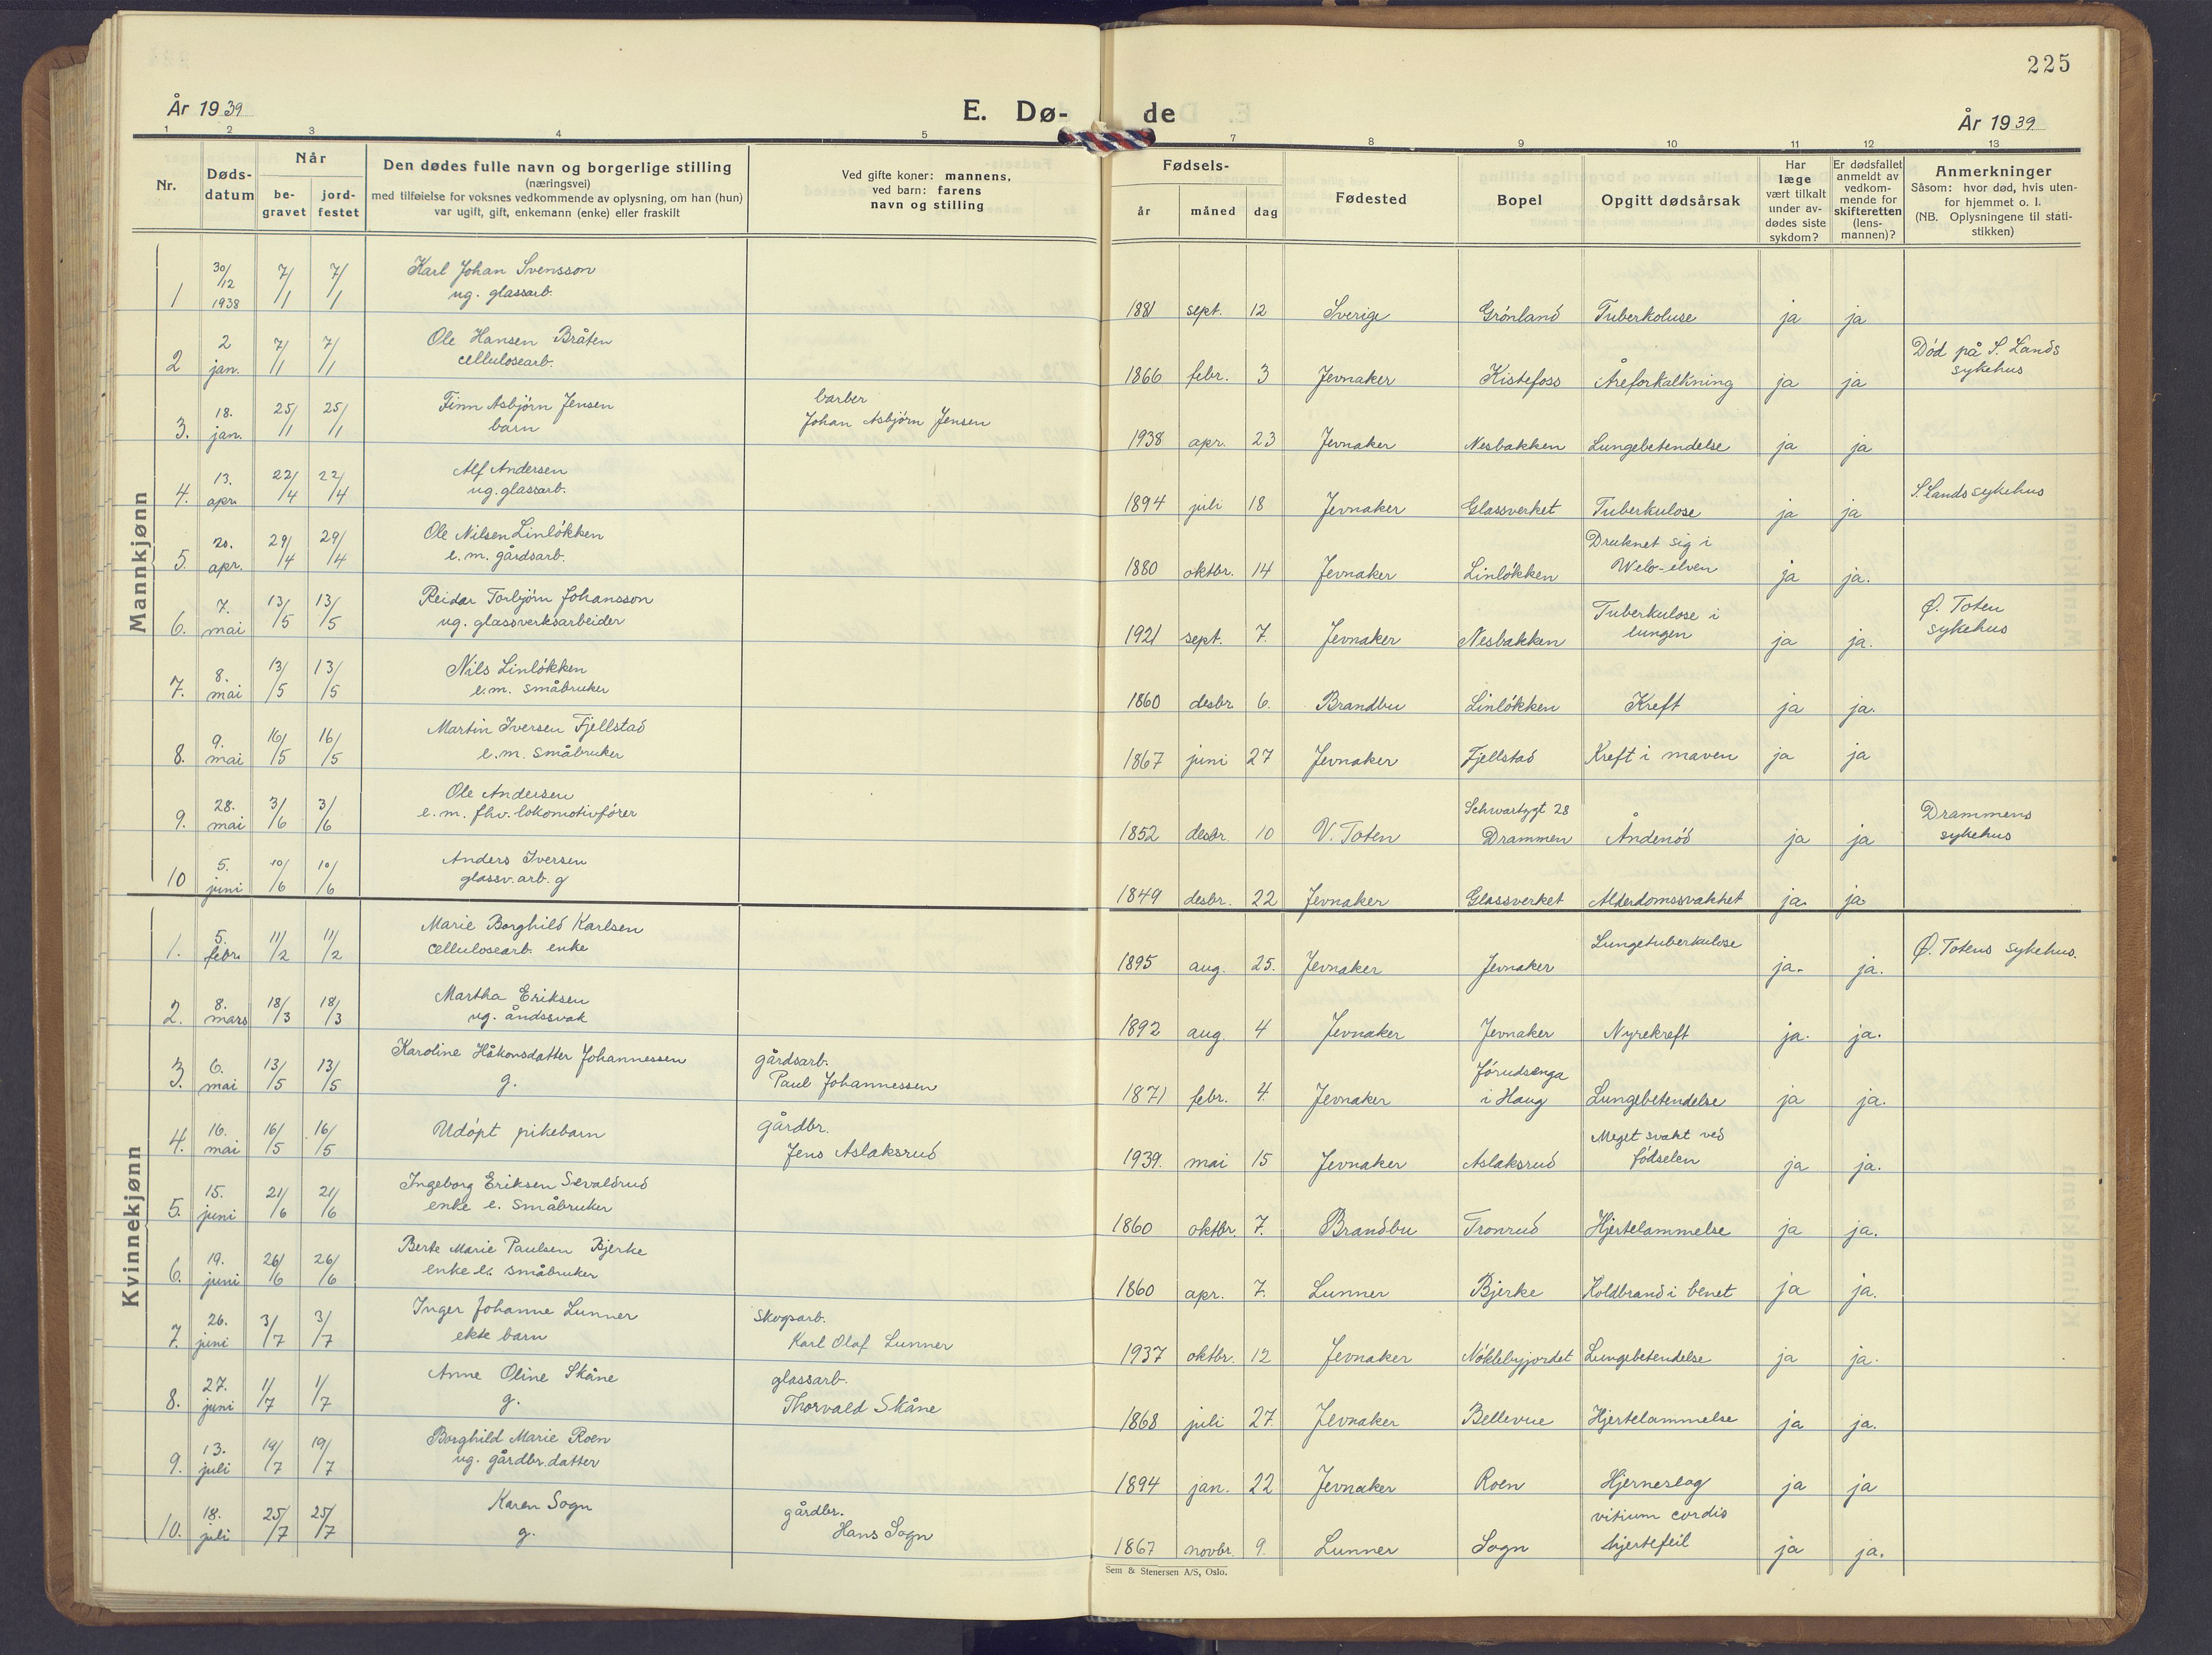 225
År 1939
E. Dø-
de
År 1939
1 2 3 4 5 7 8 9 10 11 12 13
Nr.
Døds-
datum
Når
be-
gravet
jord-
festet
Den dødes fulle navn og borgerlige stilling
(næringsvei)
med tilføielse for voksnes vedkommende av oplysning, om han (hun)
var ugift, gift, enkemann (enke) eller fraskilt
Ved gifte koner: mannens,
ved barn: farens
navn og stilling
Fødsels-
år
måned
dag
Fødested
Bopel
Opgitt dødsårsak
Har
læge
vært tilkalt
under av-
dødes siste
sykdom?
Er dødsfallet
anmeldt av
vedkom-
mende for
skifteretten
(lens-
mannen)?
Anmerkninger
Såsom: hvor død, hvis uten-
for hjemmet o. l.
(NB. Oplysningene til stati-
stikken)
Mannkjønn
1 30/12 1938 7/1 7/1 Karl Johan Svensson
ug. glassarb.
1881 sept. 12 Sverige Grönland Tuberkoluse ja ja
2 2 jan. 7/1 7/1 Ole Hansen Bråten
cellulosearb.
1866 febr. 3 Jevnaker Kistefoss Åreforkalkning ja ja
Död på S. Lands
sykehus
3. 18. jan. 25/1 25/1 Finn Asbjörn Jensen
barn
barber
Johan Asbjörn Jensen
1938 apr. 23 Jevnaker Nesbakken Lungebetendelse ja ja
4. 13. apr. 22/4 22/4 Alf Andersen
ug. glassarb.
1894 juli 18 Jevnaker Glassverket Tuberkulose ja ja
S. Lands sykehus
5. 20. apr. 29/4 29/4 Ole Nilsen Linlökken
e. m. gårdsarb.
1880 oktbr. 14 Jevnaker Linlökken
Druknet sig i
Welo-elven ja ja.
6. 7. mai 13/5 13/5 Reidar Torbjörn Johansson
ug. glassverksarbeider
1921 sept. 7. Jevnaker Nesbakken
Tuberkulose i
lungen ja ja.
Ø. Toten
sykehus
7. 8. mai 13/5 13/5 Nils Linlökken
e. m. småbruker
1860 desbr 6. Brandbu Linlökken Kreft ja ja.
8. 9. mai 16/5 16/5 Martin Iversen Fjellstad
e. m. småbruker
1867 juni 27 Jevnaker Fjellstad Kreft i maven ja ja
9. 28. mai 3/6 3/6 Ole Andersen
e. m. fhv. lokomotivförer
1852 desbr. 10 V. Toten
Schwartzgt 28
Drammen Åndenöd ja ja
Drammens
sykehus
10 5. juni 10/6 10/6 Anders Iversen
glassv. arb. g
1849 desbr. 22 Jevnaker Glassverket Alderdomssvakhet ja. ja
Kvinnekjønn
1. 5. febr. 11/2 11/2 Marie Borghild Karlsen
cellulosearb. enke
1895 aug. 25. Jevnaker Jevnaker Lungetuberkulose ja. ja.
Ø. Totens sykehus.
2. 8. mars 18/3 18/3 Martha Eriksen
ug. åndssvak
1892 aug. 4 Jevnaker Jevnaker Nyrekreft ja. ja.
3. 6. mai 13/5 13/5 Karoline Håkonsdatter Johannessen
g.
gårdsarb.
Paul Johannessen
1871 febr. 4. Jevnaker
Jörudsenga
i Haug Lungebetendelse ja ja.
4. 16. mai 16/5 16/5 Udöpt pikebarn
gårdbr.
Jens Aslaksrud
1939. mai 15 Jevnaker Aslaksrud
Meget svakt ved
födselen ja ja.
5. 15. juni 21/6 21/6 Ingeborg Eriksen Sevaldrud
enke e. småbruker
1860 oktbr. 7. Brandbu Tronrud Hjertelammelse ja ja.
6. 19. juni 26/6 26/6 Berte Marie Paulsen Bjerke
enke e. småbruker
1860 apr. 7. Lunner Bjerke Koldbrand i benet ja ja.
7. 26. juni 3/7 3/7 Inger Johanne Lunner
ekte barn
skogsarb.
Karl Olaf Lunner
1937 oktbr. 12 Jevnaker Nöklebyjordet Lungebetendelse ja ja.
8. 27. juni 1/7 1/7 Anne Oline Skåne
g.
glassarb.
Thorvald Skåne
1868 juli 27 Jevnaker Bellevue Hjertelammelse ja ja.
9. 13. juli 19/7 19/7 Borghild Marie Roen
ug. gårdbr. datter
1894 jan. 22 Jevnaker Roen Hjerneslag ja ja
10. 18. juli 25/7 25/7 Karen Sogn
g.
gårdbr.
Hans Sogn
1867 novbr. 9. Lunner Sogn
vitium cordis
hjertefeil ja ja.
Sem & Stenersen A/S, Oslo.